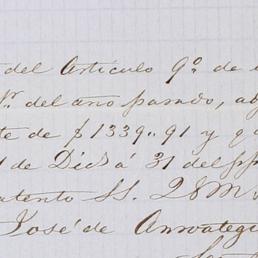 del Articulo 9º de
del año pasado, a
te de $1339.. 91 y q
de Dic á 31 del pp
atento SS. 2SM
José de Arrategui